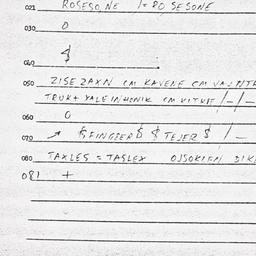 021 ROSESO,NE 1=80 SESONE
030 0
040 $
050 ZISEZAXN CM KAVENE CM
TRUK+ YALEINHONIK CM VITKIT /-/-
060 0
070 → $FINGZER$ $TEJER$ / -
080 TAXLES = TASLEX OJSOKIEN
081 +